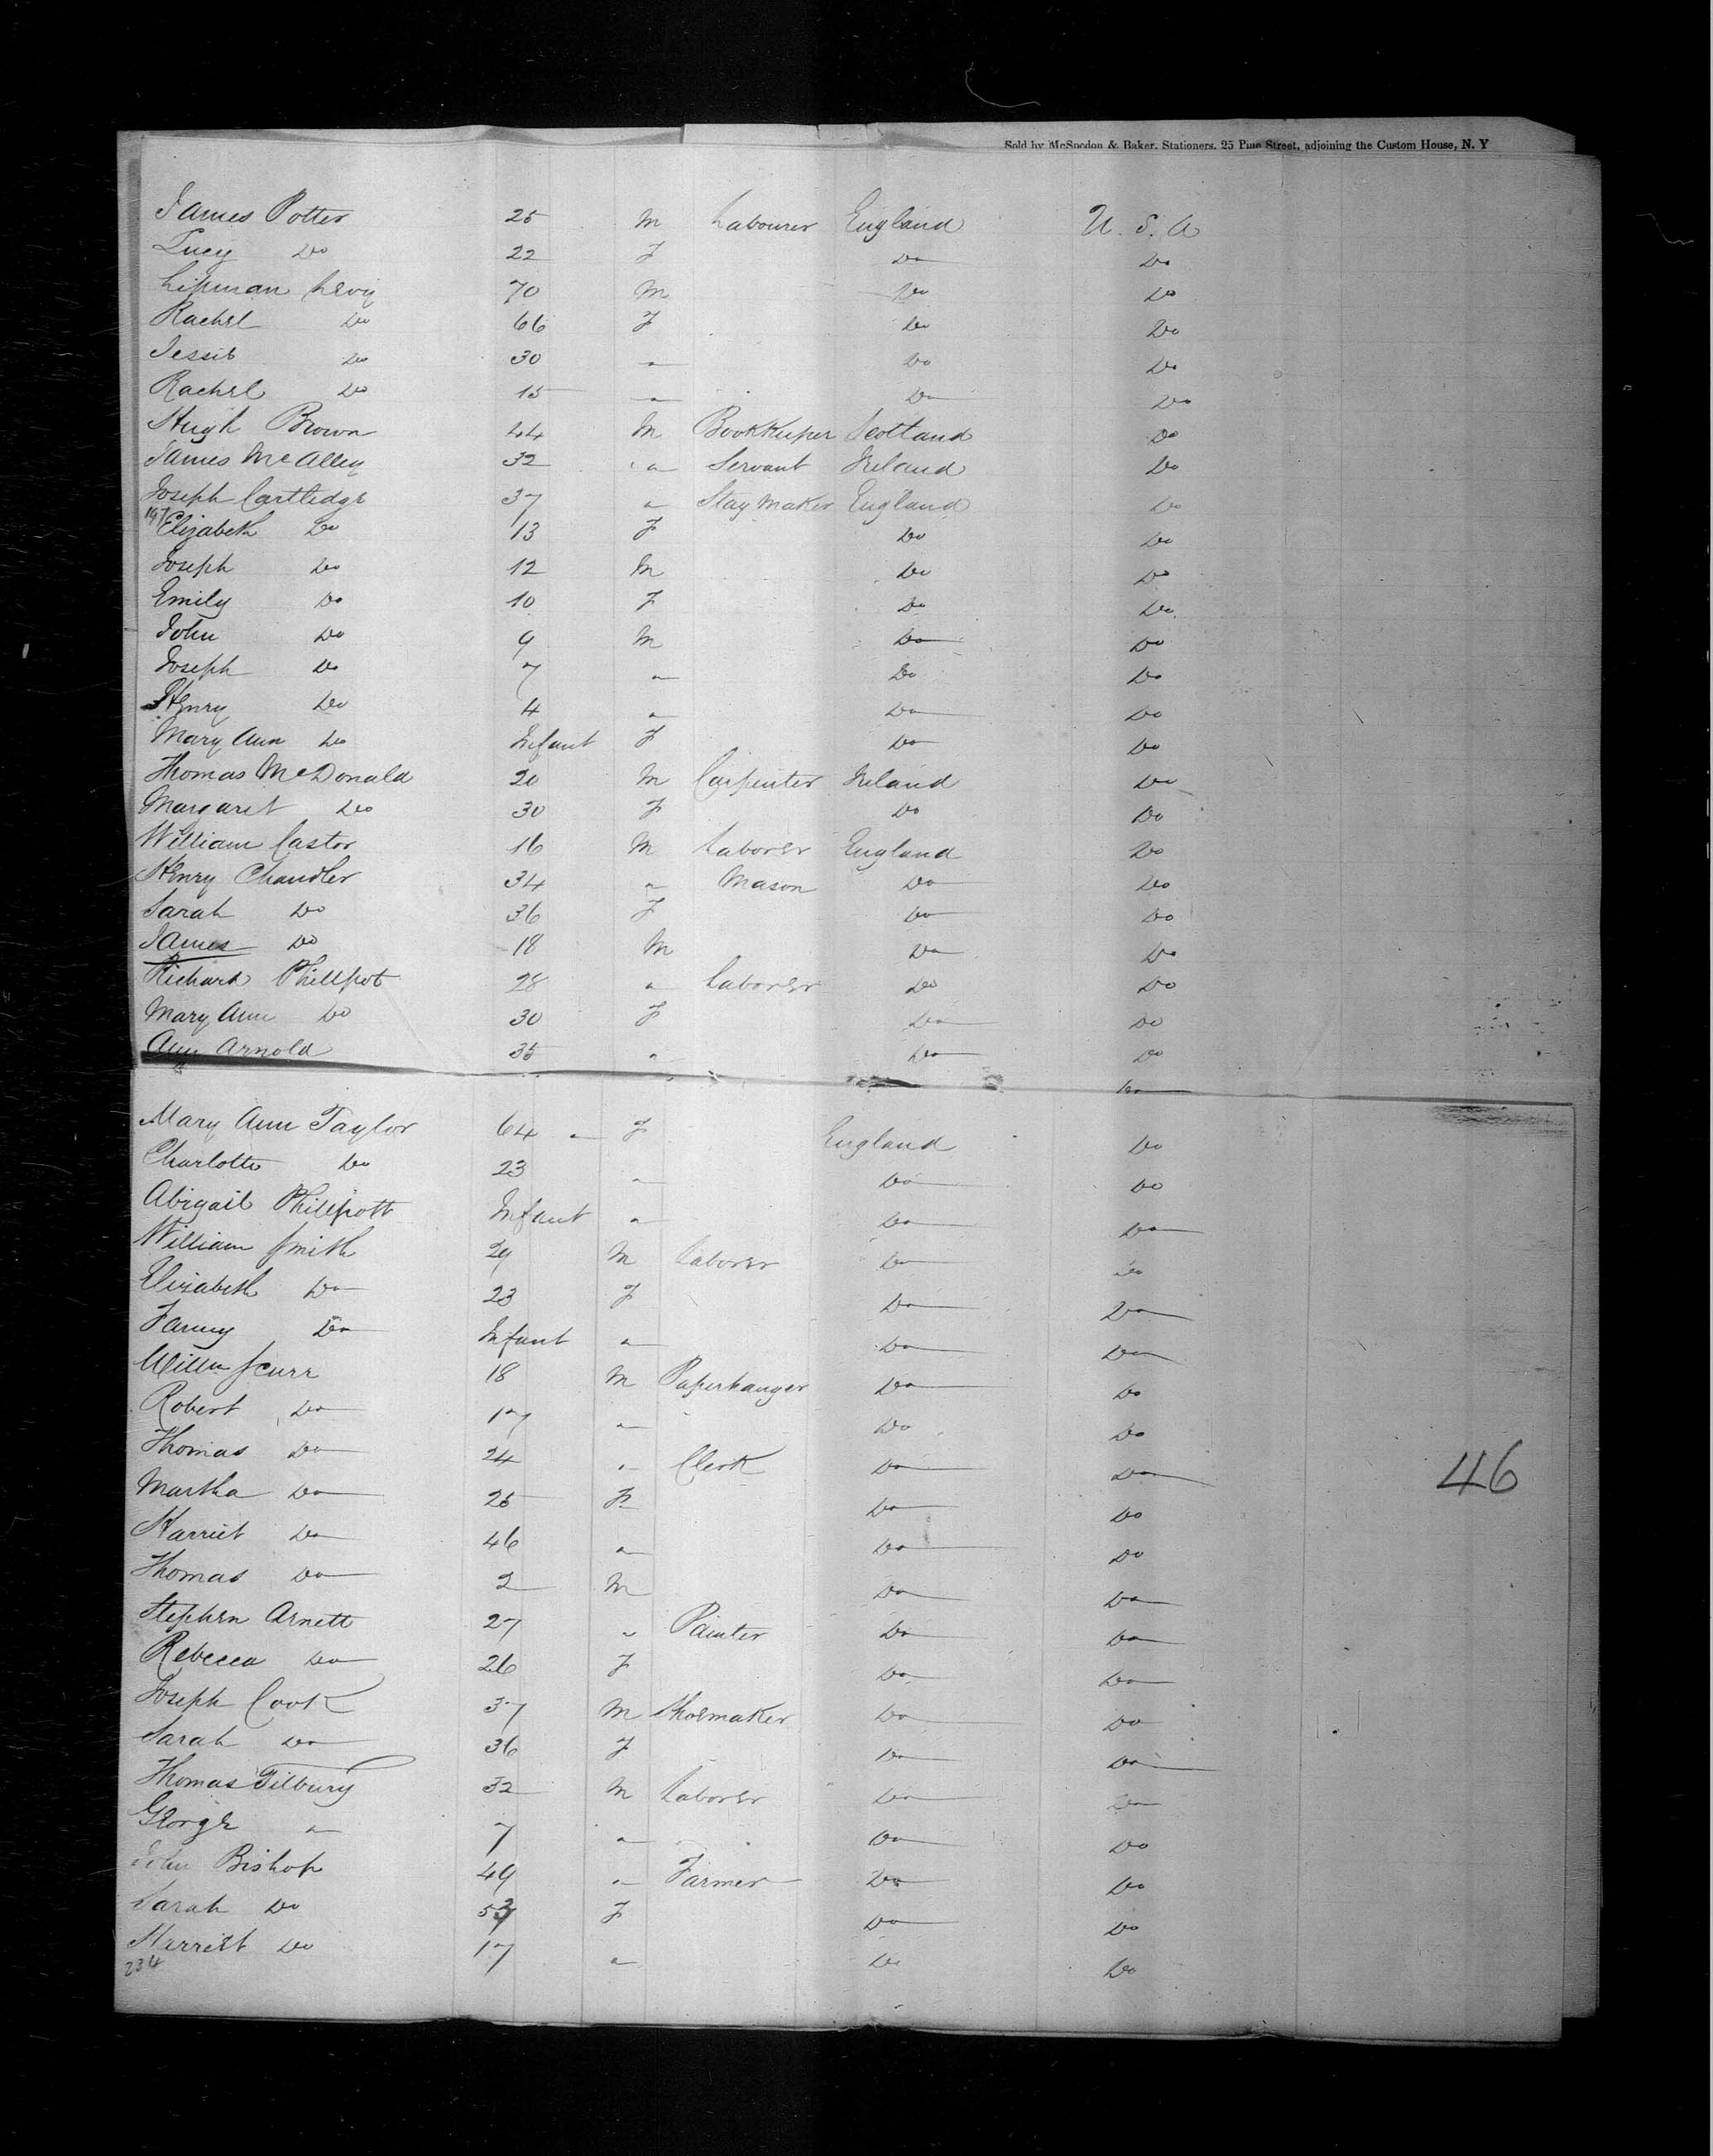 Sold by McSpedon & Baker, Stationers, 25 Pine Street, adjoining the Custom House, N. Y
James Potter 25 M Labourer England U. S. A
Lucy Do 22 F Do Do
Lipman Levy 70 M Do Do
Rachel Do 66 F Do Do
Jessie Do 30 " Do Do
Rachel Do 15 " Do Do
Hugh Brown 44 M Bookkeeper Scotland Do
James McAlley 32 " Servant Ireland Do
Joseph Cartledge 37 " Stay Maker England Do
197 Elizabeth Do 13 F Do Do
Joseph Do 12 M Do Do
Emily Do 10 F Do Do
John Do 9 M Do Do
Joseph Do 7 " Do Do
Henry Do 4 " Do Do
Mary Ann Do Infant F Do Do
Thomas McDonald 20 M Carpenter Ireland Do
Margaret Do 30 F Do Do
William Castor 16 M Laborer England Do
Henry Chandler 34 " Mason Do Do
Sarah Do 36 F Do Do
James Do 18 M Do Do
Richard Phillpot 28 " Laborer Do Do
Mary Ann Do 30 F Do Do
Ann Arnold 35 " Do Do
Do
Mary Ann Taylor 64 " F England Do
Charlotte Do 23 " Do Do
Abigail Phillpott Infant " Do Do
William Smith 29 M Laborer Do Do
Elizabeth Do 23 F Do Do
Fanny Do Infant " Do Do
Willm Scurr 18 M Paperhanger Do Do
Robert Do 17 " Do Do
Thomas Do 24 " Clerk Do Do
Martha Do 25 F Do Do
46
Harriet Do 46 " Do Do
Thomas Do 2 M Do Do
Stephen Arnett 27 " Painter Do Do
Rebecca Do 26 F Do Do
Joseph Cook 37 M Shoemaker Do Do
Sarah Do 36 F Do Do
Thomas Tilbury 32 M Laborer Do Do
George " 7 " Do Do
John Bishop 49 " Farmer Do Do
Sarah Do F Do Do
Harriett Do 17 " Do Do
234